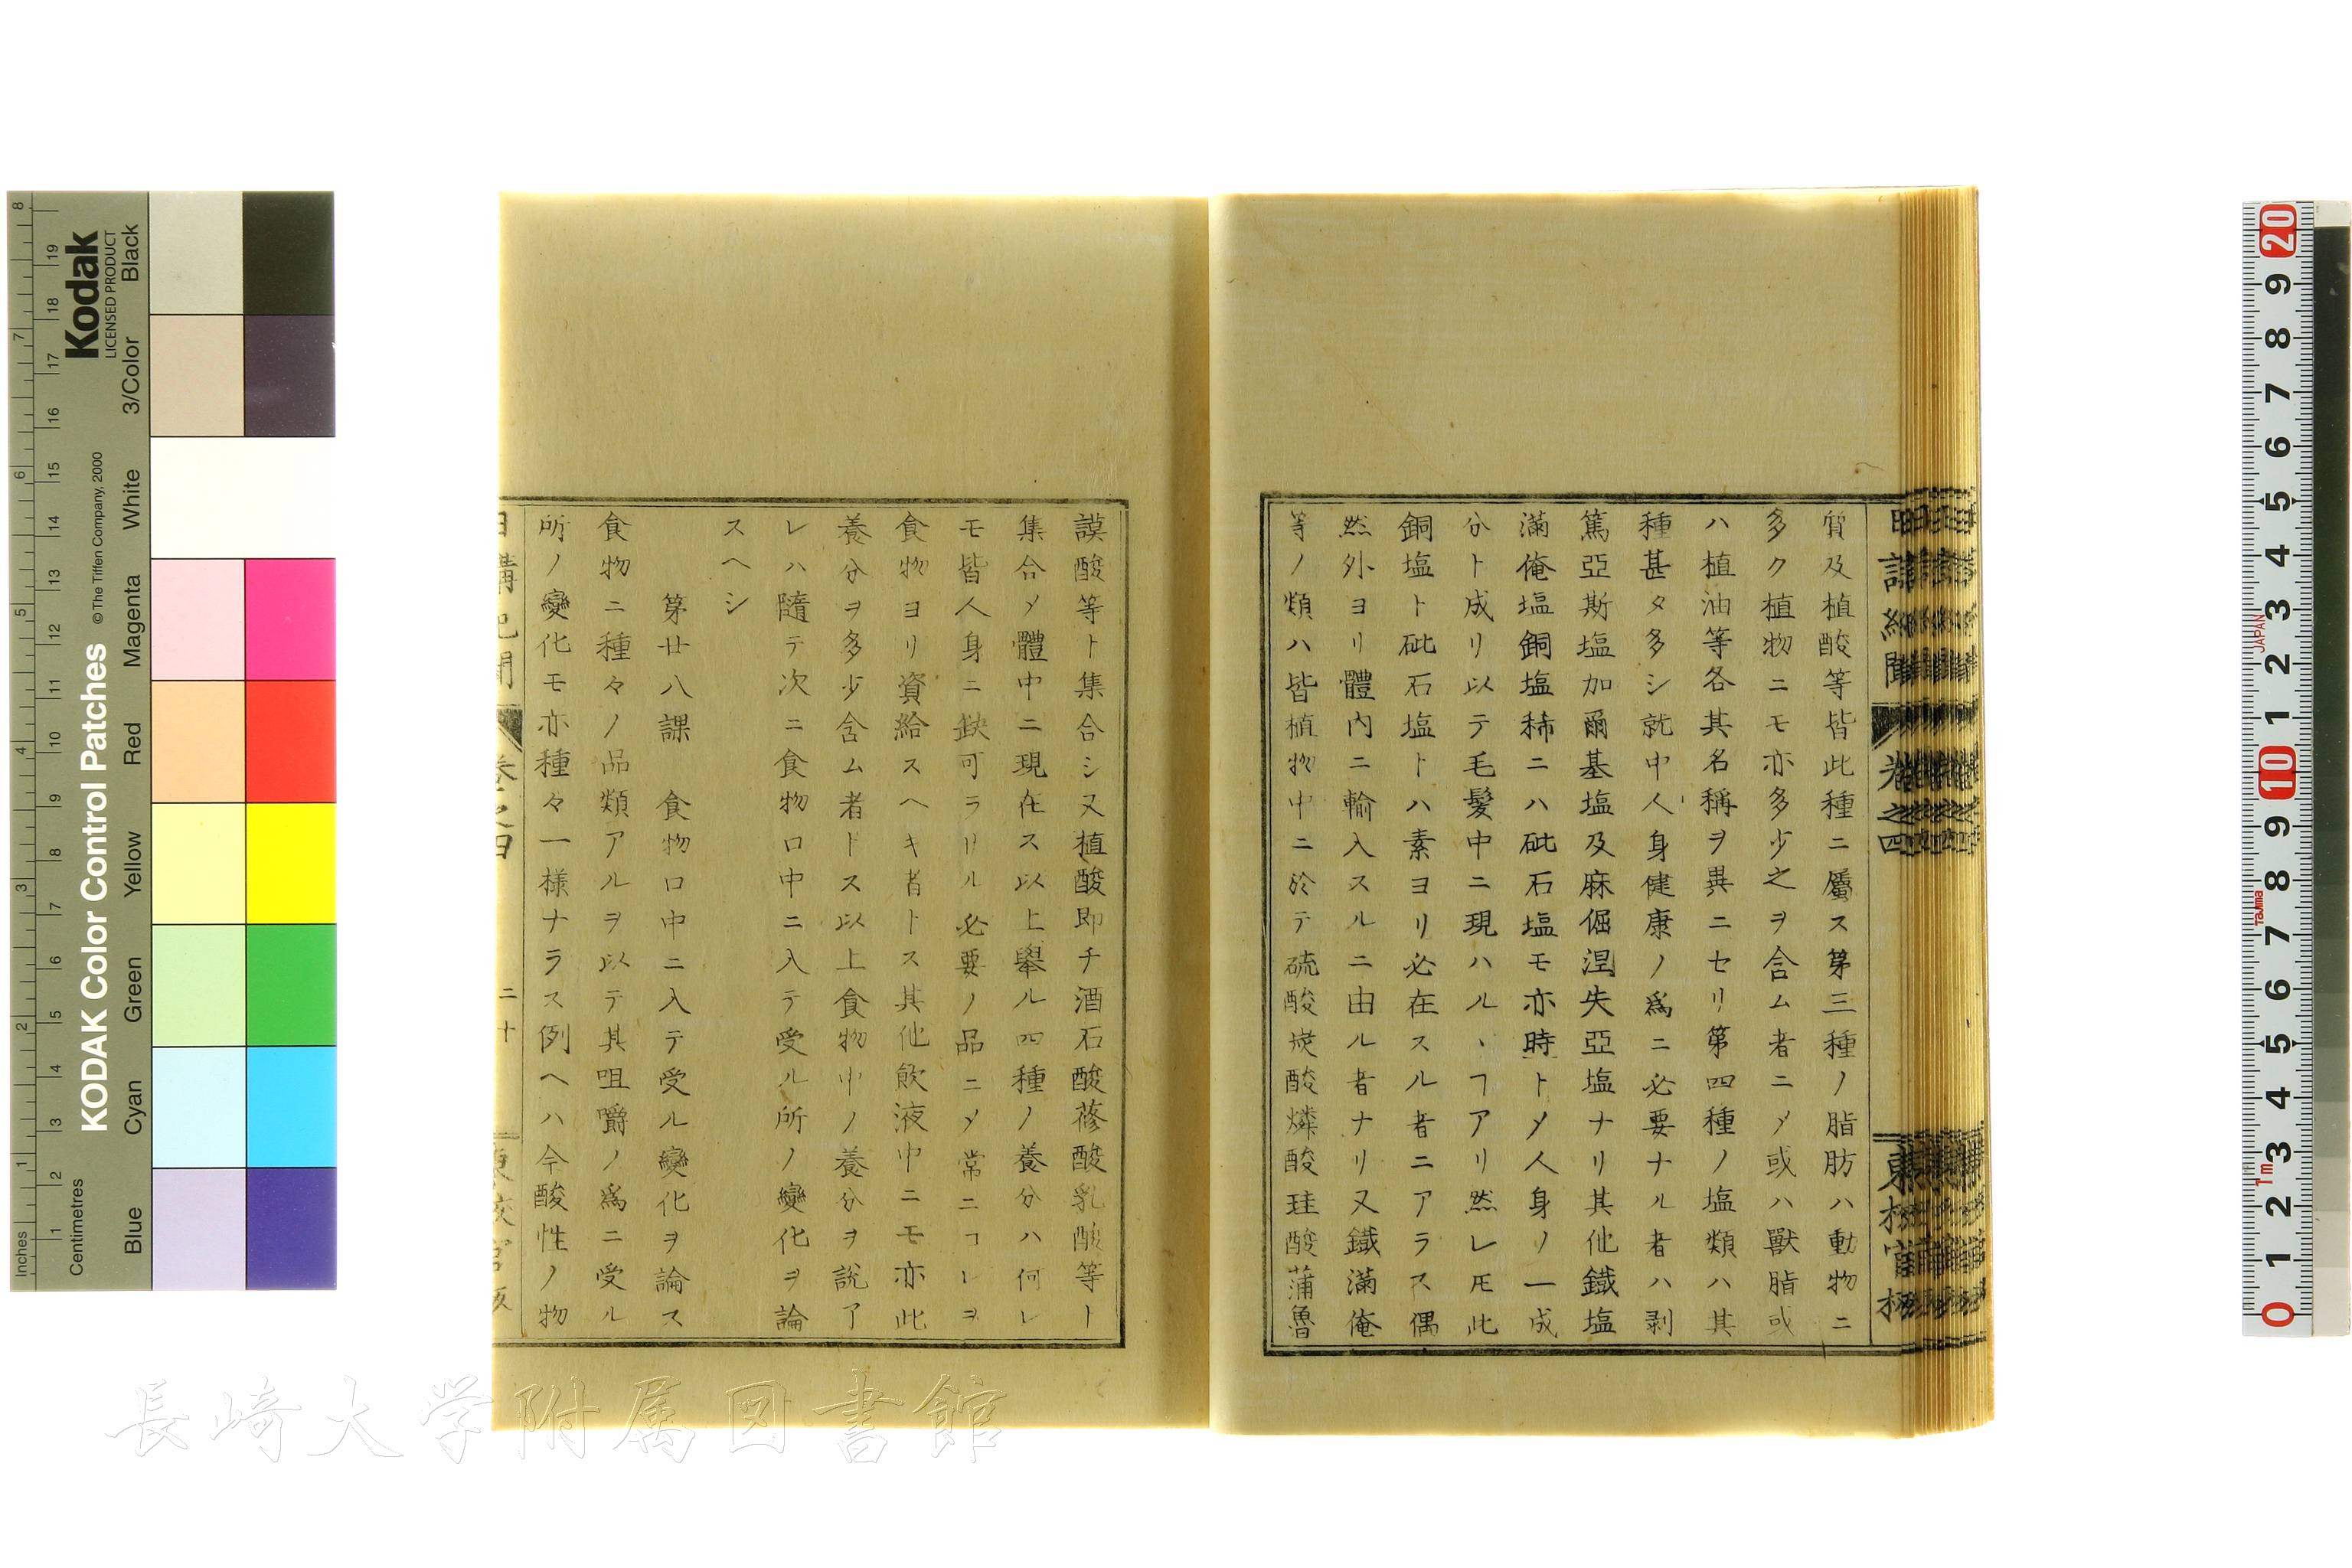 質及植酸等皆此種ニ屬ス第三種ノ脂肪ハ動物ニ
多ク植物ニモ亦多少之ヲ含ム者ニメ或ハ獸脂或
ハ植油等各其名稱ヲ異ニセリ第四種ノ塩類ハ其
種甚タ多シ就中人身健康ノ爲ニ必要ナル者ハ剥
篤亞斯塩加爾基塩及麻倔涅失亞塩ナリ其他鐵塩
滿俺塩銅塩稀ニハ砒石塩モ亦時トメ人身ノ一成
分ト成リ以テ毛髮中ニ現ハルヽヿアリ然レ𪜈此
銅塩ト砒石塩トハ素ヨリ必在スル者ニアラス偶
然外ヨリ體内ニ輸入スルニ由ル者ナリ又鐵滿俺
等ノ類ハ皆植物中ニ於テ硫酸炭酸燐酸珪酸蒲魯
謨酸等ト集合シ又植酸即チ酒石酸蓚酸乳酸等ト
集合メ體中ニ現在ス以上擧ル四種ノ養分ハ何レ
モ皆人身ニ缺可ラサル必要ノ品ニメ常ニコレヲ
食物ヨリ資給スヘキ者トス其他飲液中ニモ亦此
養分ヲ多少含ム者トス以上食物中ノ養分ヲ説ア
レハ隨テ次ニ食物口中ニ入テ受ル所ノ變化ヲ論
スヘシ
第廿八課 食物口中ニ入テ受ル變化ヲ論ス
食物ニ種々ノ品類アルヲ以テ其咀嚼ノ爲ニ受ル
所ノ變化モ亦種々一樣ナラス例ヘハ今酸性ノ物
日講紀聞 卷之四 二十
日講紀聞 卷之四
KODAK Color Control Patches
© The Tiffen Company, 2000
Kodak
LICENSED PRODUCT
Inches
Centimetres
1 2 3 4 5 6 7 8
1 2 3 4 5 6 7 8 9 10 11 12 13 14 15 16 17 18 19
Blue Cyan Green Yellow Red Magenta White 3/Color Black
0 1 2 3 4 5 6 7 8 9 10 1 2 3 4 5 6 7 8 9 20
1m
Tajima
JAPAN
長崎大学附属図書館